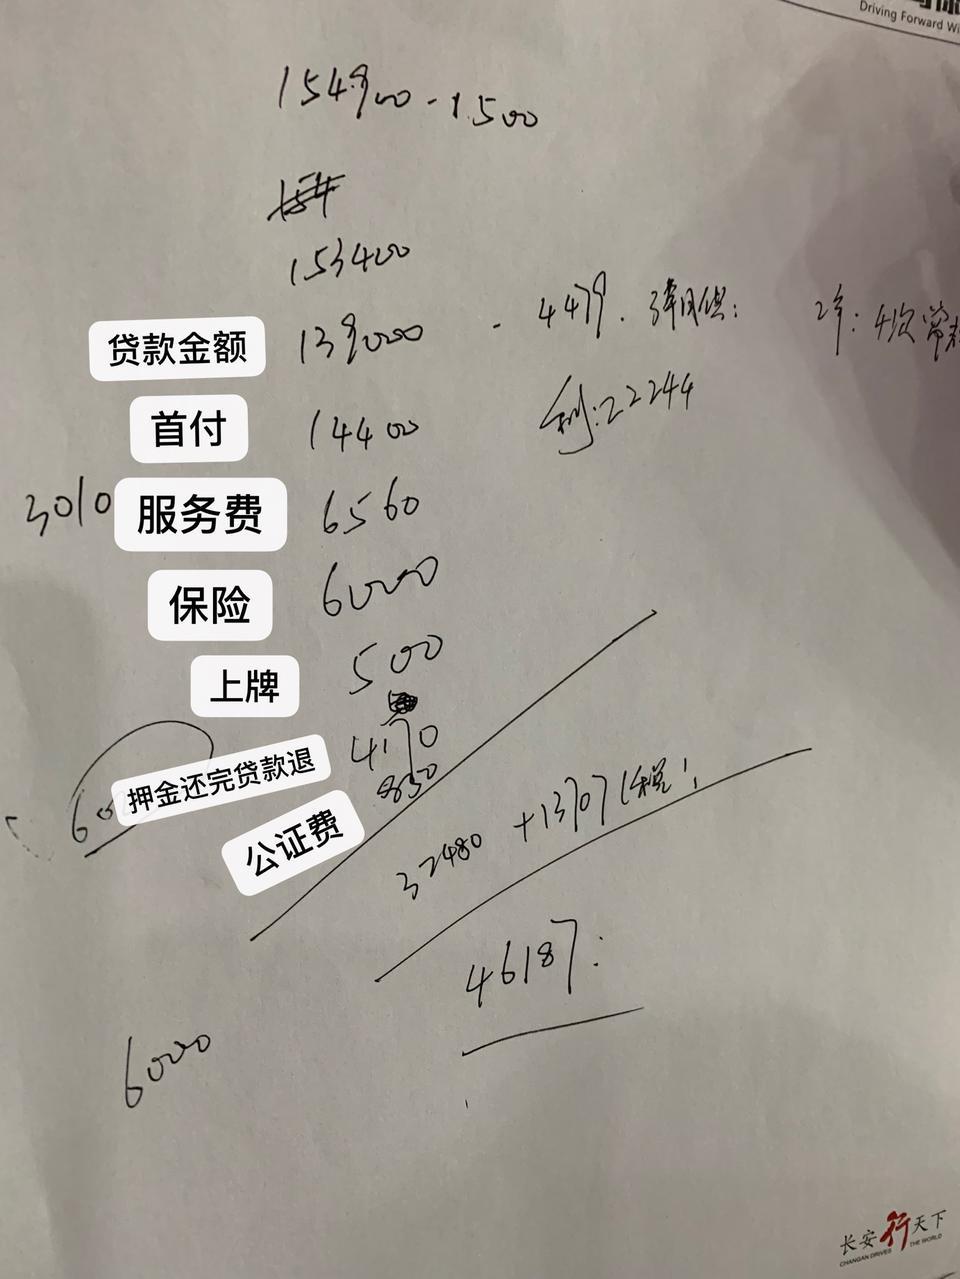 Driving Forward Wi
154900 - 1500
153400
贷款金额 139000 - 4479. 3年月供: 2年: 
首付 14400 利:22244
3010 服务费 6560
保险 6000
上牌 500
押金还完贷款退 4170
公证费 850
32480 +13707(税)
46187:
6000
长安行天下
CHANGAN DRIVES THE WORLD